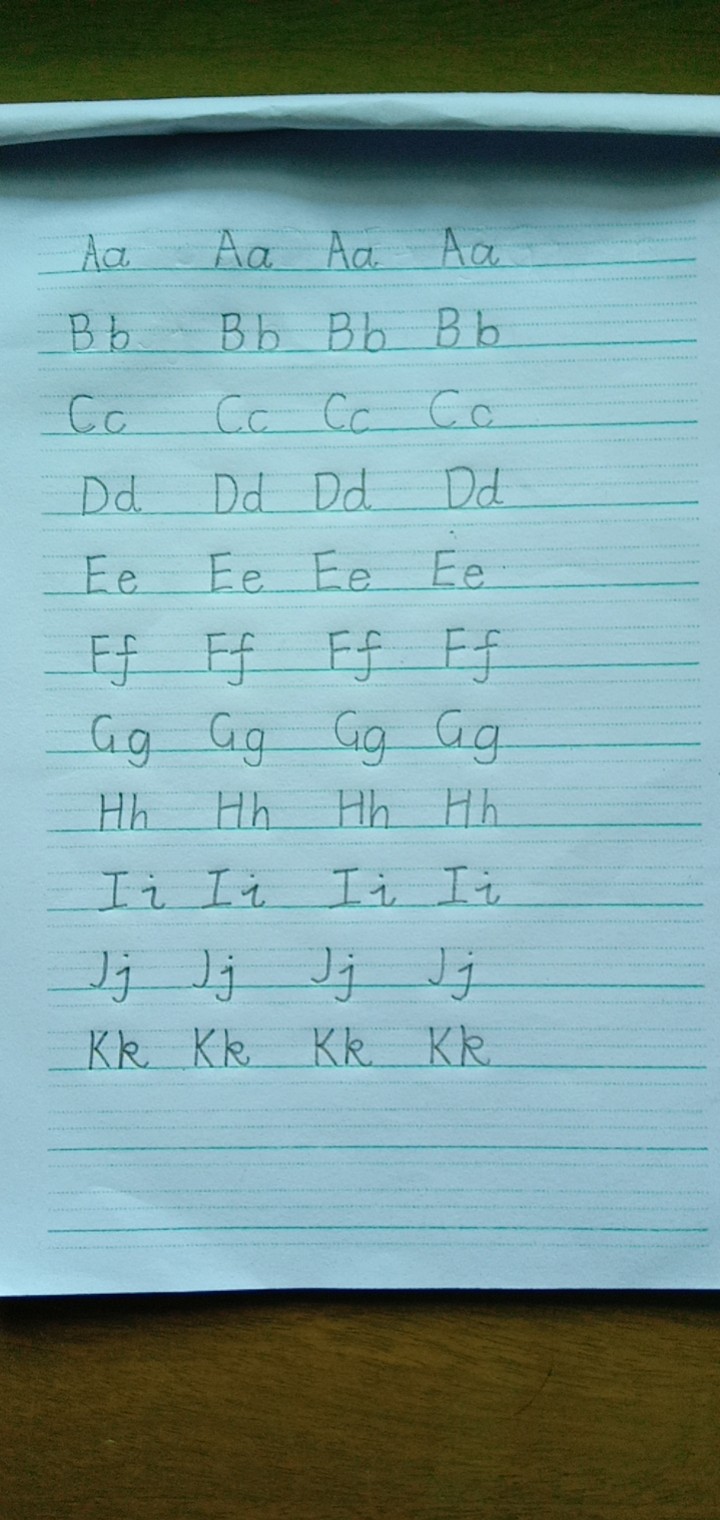 Aa Aa Aa Aa
Bb Bb Bb Bb
Cc Cc Cc Cc
Dd Dd Dd Dd
Ee Ee Ee Ee
Ff Ff Ff Ff
Gg Gg Gg Gg
Hh Hh Hh Hh
Ii Ii Ii Ii
Jj Jj Jj Jj
Kk Kk Kk Kk